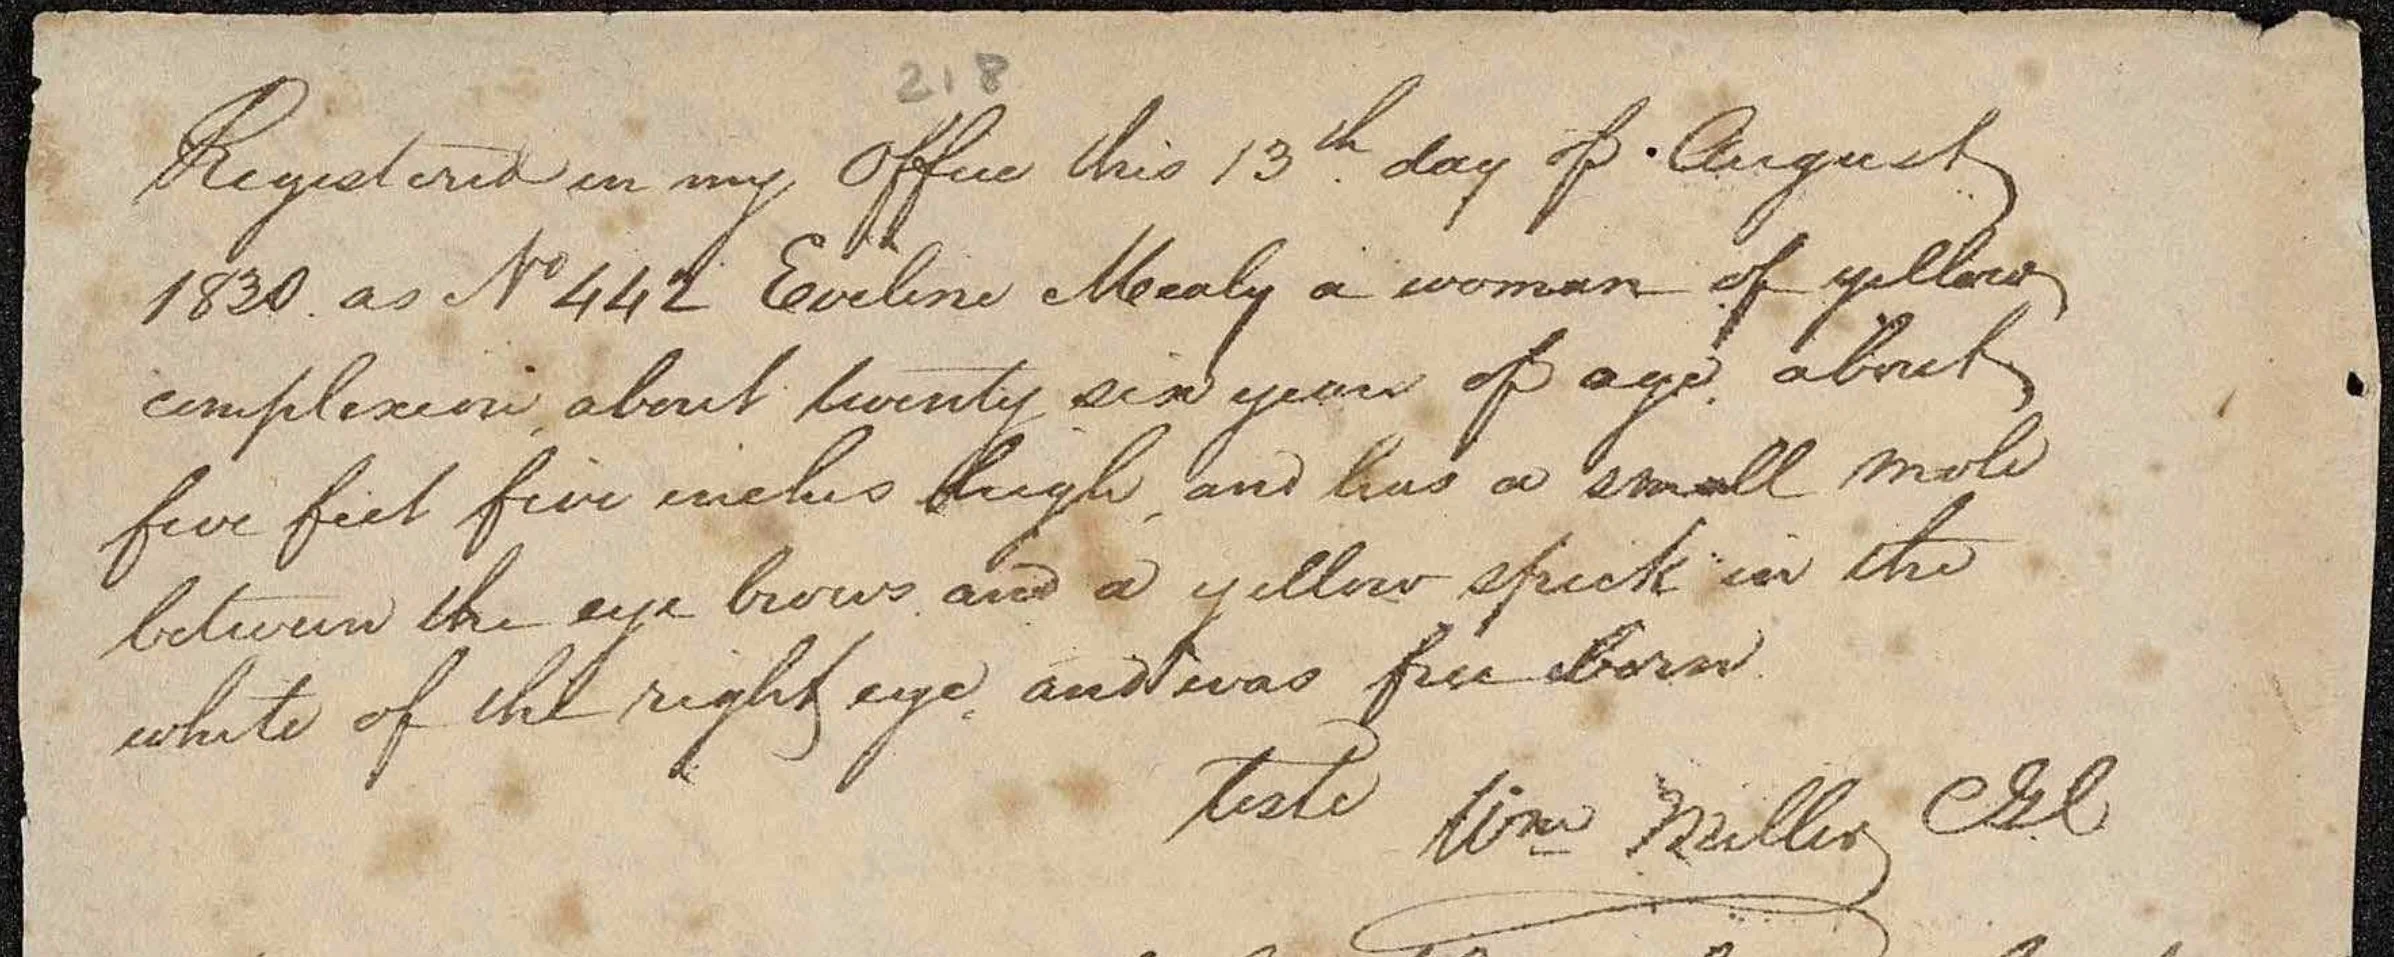 218
Registered in my Office this 13th day of August
1830. as No 442 Eveline Mealy a woman of yellow
complexion, about twenty six years of age, about
five feet five inches high, and has a small mole
between the eye brows and a yellow speck in the
white of the right eye, and was free born
teste Wm Miller CGC